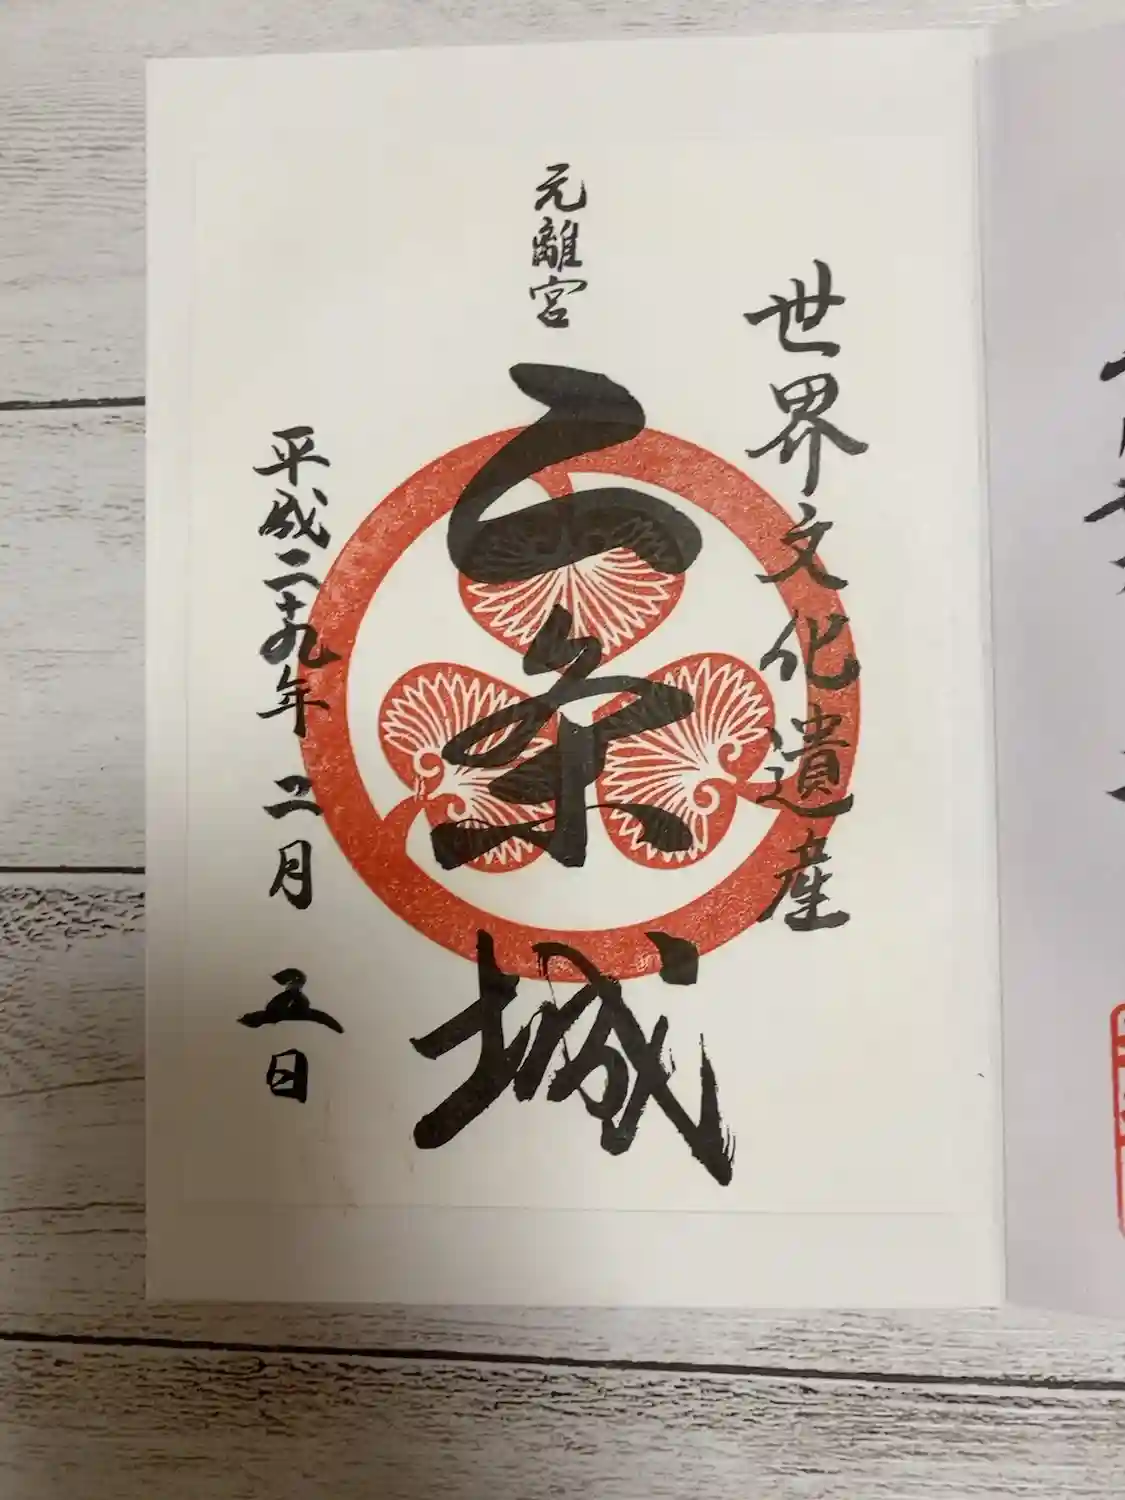 世界文化遺産
元離宮
二条城
平成二十九年 二月 五日